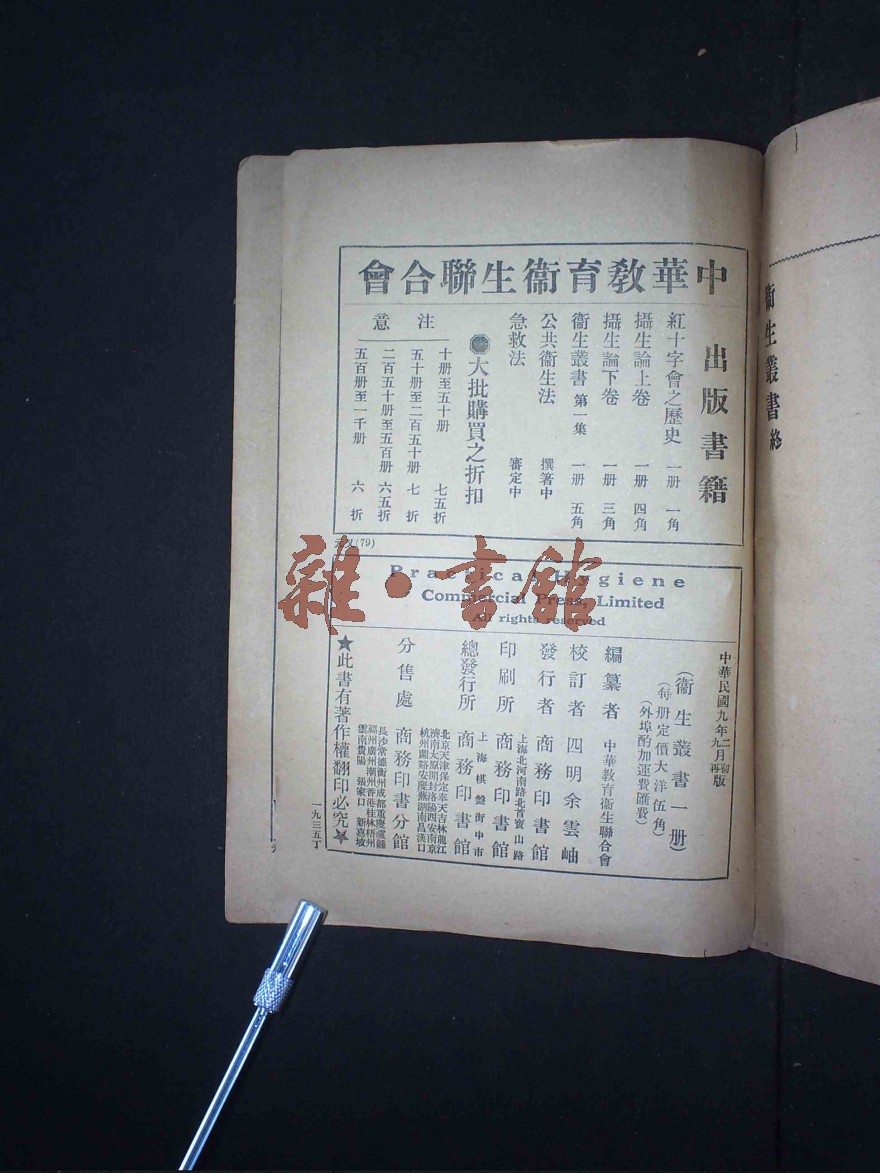 衞生叢書終
中華教育衞生聯合會
出版書籍
紅十字會之歷史 一册 一角
攝生論上卷 一册 四角
攝生論下卷 一册 三角
衞生叢書 第一集 一册 五角
公共衞生法 撰箸中
急救法 審定中
大批購買之折扣
注意
十册至五十册 七五折
五十册至二百五十册 七折
二百五十册至五百册 六五折
五百册至一千册 六折
(79)
Practical Hygiene
Commercial Press, Limited
All rights reserved
中華民國九年二月初版
九月再版
(衞生叢書一册)
(每册定價大洋伍角)
(外埠酌加運費匯費)
編纂者 中華教育衞生聯合會
校訂者 四明余雲岫
發行者 商務印書館
上海北河南路北首寶山路
印刷所 商務印書館
上海棋盤街中市
總發行所 商務印書館
北京天津保定奉天吉林龍江
濟南太原開封洛陽西安南京
杭州蘭谿安慶蕪湖南昌漢口
分售處 商務印書分館
長沙常德衡州成都重慶瀘縣
福州廣州潮州香港桂林梧州
雲南貴陽 張家口 新嘉坡
★此書有著作權翻印必究★
一九三五丁
雜·書館